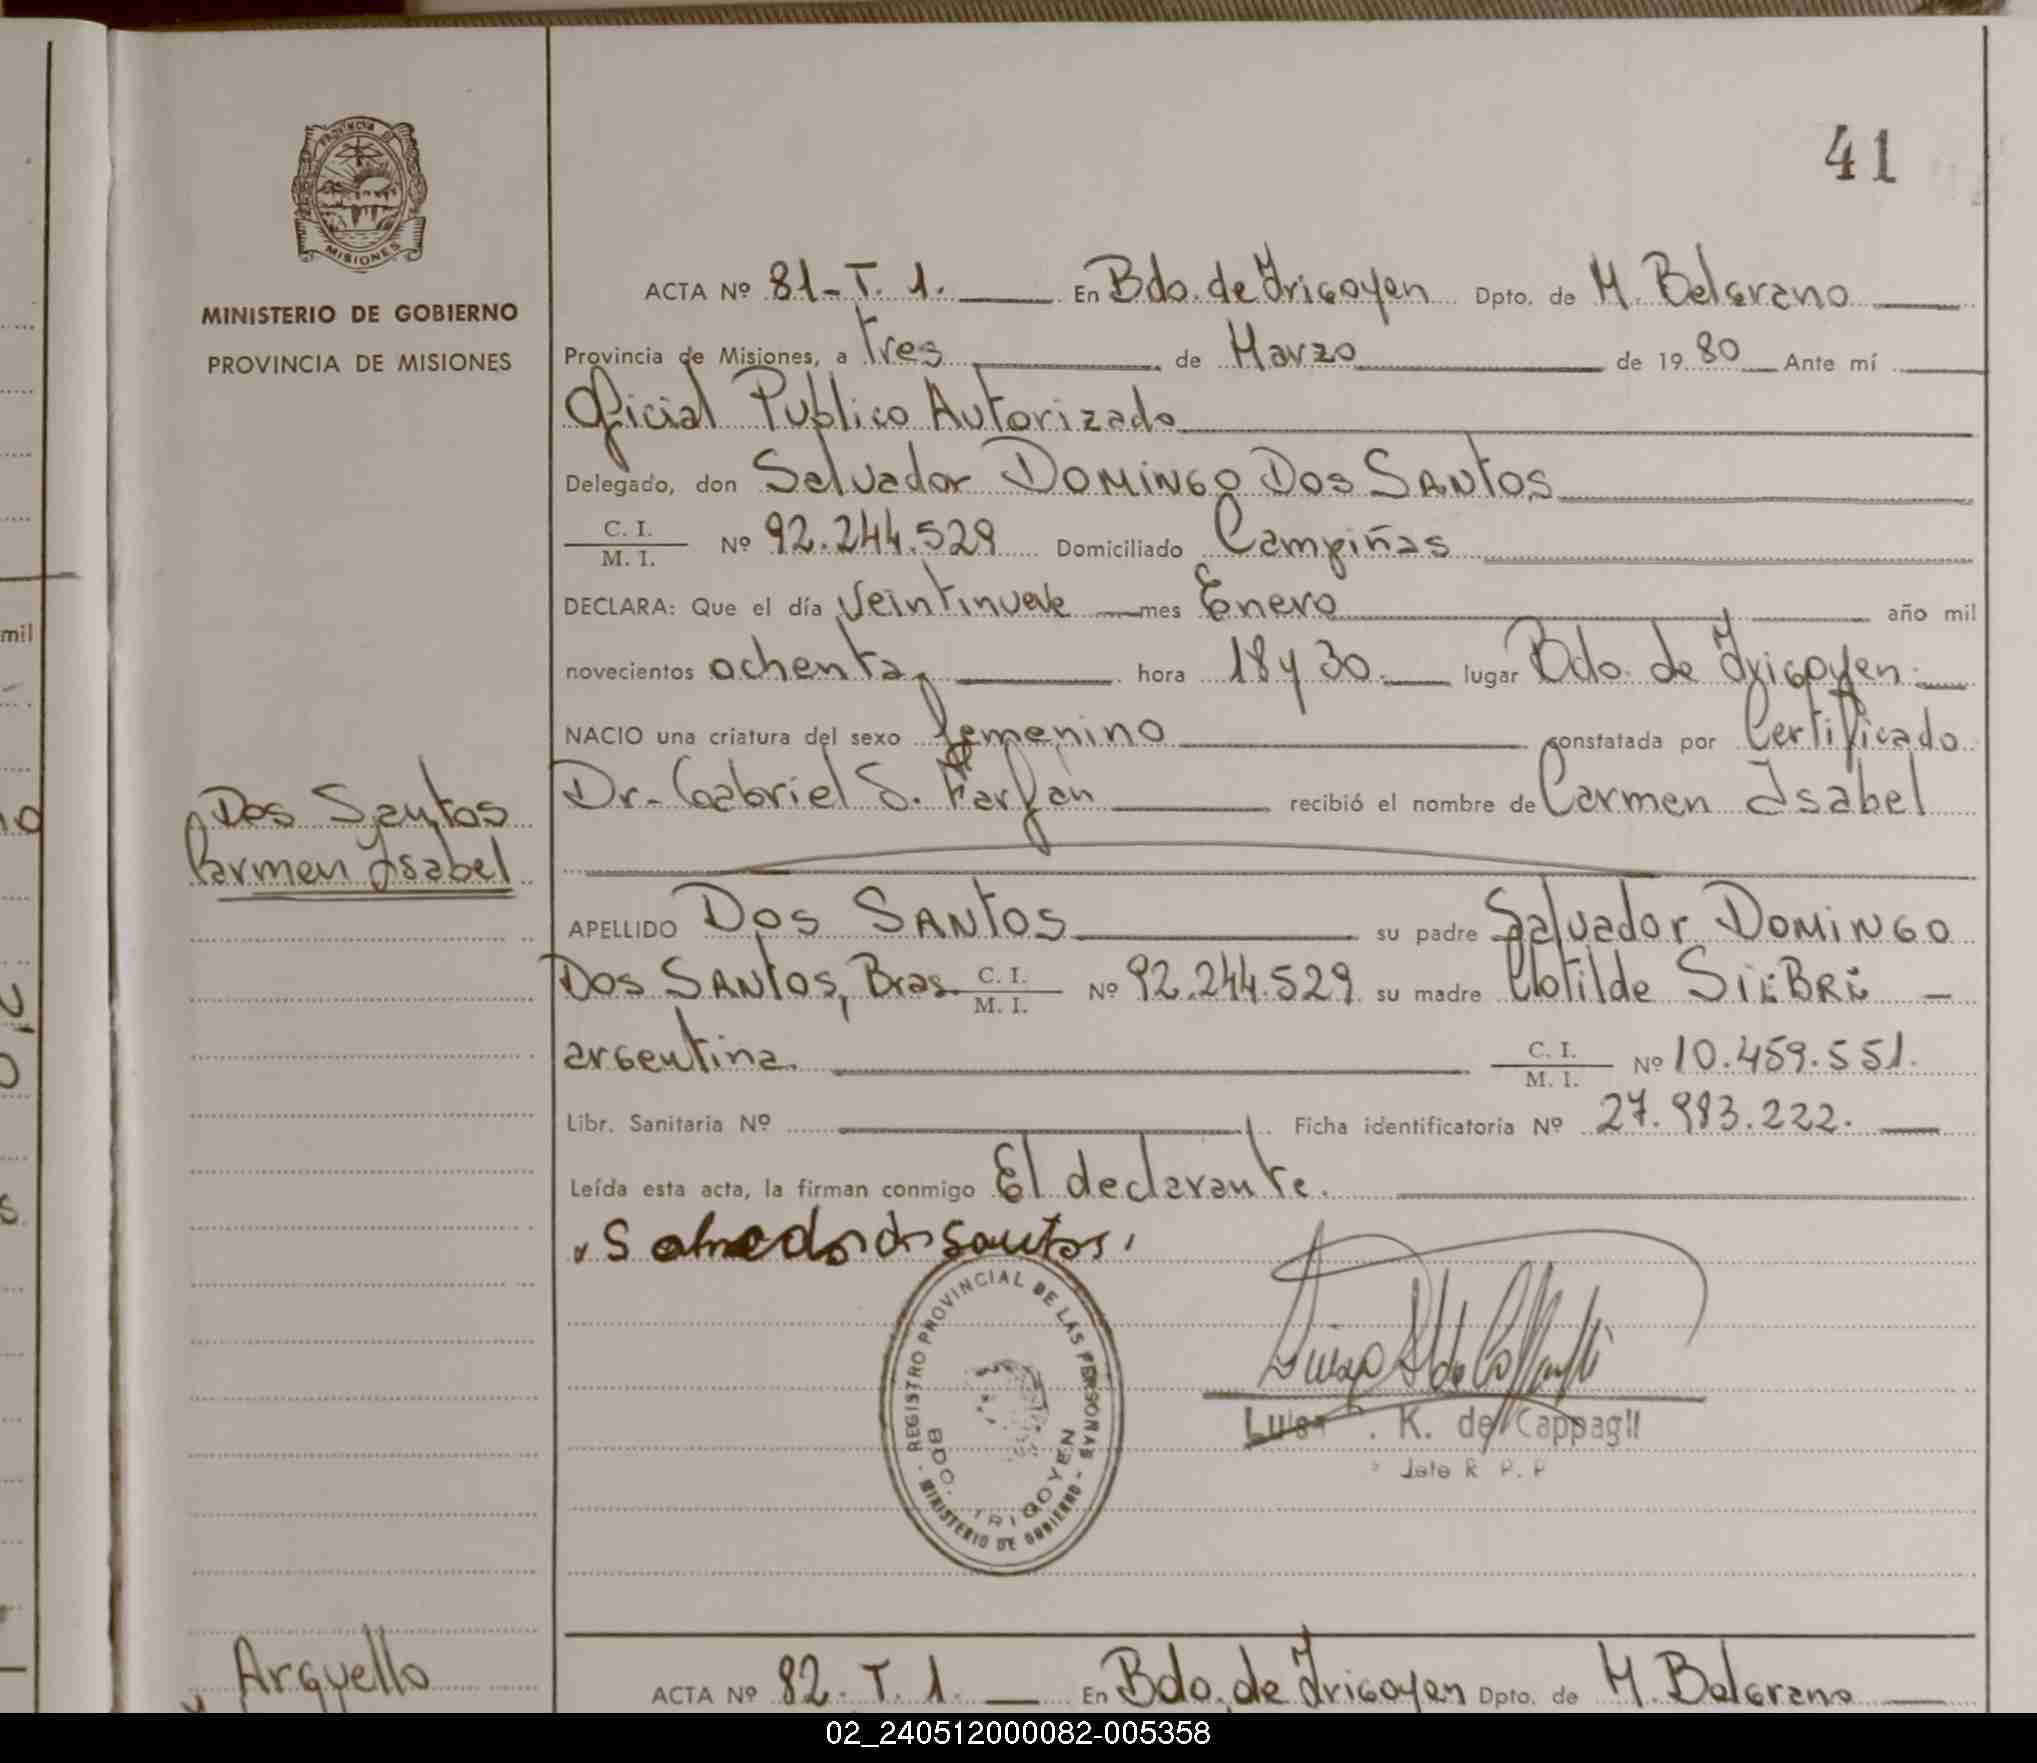 41
PROVINCIA DE
MISIONES
MINISTERIO DE GOBIERNO
PROVINCIA DE MISIONES
ACTA Nº 81-T. 1. En Bdo. de Irigoyen Dpto. de M. Belgrano
Provincia de Misiones, a tres de Marzo de 19 80 Ante mí
Oficial Publico Autorizado
Delegado, don Salvador DOMINGO DOS SANTOS
C. I. / M. I. Nº 92.244.529 Domiciliado Campiñas
DECLARA: Que el día veintinueve mes Enero año mil
novecientos ochenta, hora 18 y 30. lugar Bdo. de Irigoyen.
NACIO una criatura del sexo femenino constatada por Certificado
Dr. Gabriel S. Farfan recibió el nombre de Carmen Isabel
Dos Santos
Carmen Isabel
APELLIDO DOS SANTOS su padre Salvador DOMINGO
DOS SANTOS, Bras. C. I. / M. I. Nº 92.244.529 su madre Clotilde
argentina. C. I. / M. I. Nº 10.459.551.
Libr. Sanitaria Nº Ficha identificatoria Nº 27.983.222.
Leída esta acta, la firman conmigo El declarante.
santos
REGISTRO PROVINCIAL DE LAS PERSONAS
BDO. IRIGOYEN
MINISTERIO DE GOBIERNO
Luisa K. de Cappagli
Jefe R. P. P
Arguello
ACTA Nº 82. T. 1. En Bdo. de Irigoyen Dpto. de M. Belgrano
mil
02_240512000082-005358